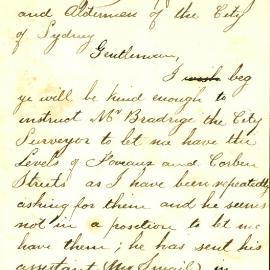 and Aldermen of the City
of Sydney
Gentlemen,
I wish beg
ye will be kind enough to
instruct Mr Bradrige the City
Surveyor to let me have the
Levels of Foveaux and Corben
Streets as I have been repeatedly
asking for them and he seems
not in a position to let me
have them; he has sent his
assistant (Mr Smail) in